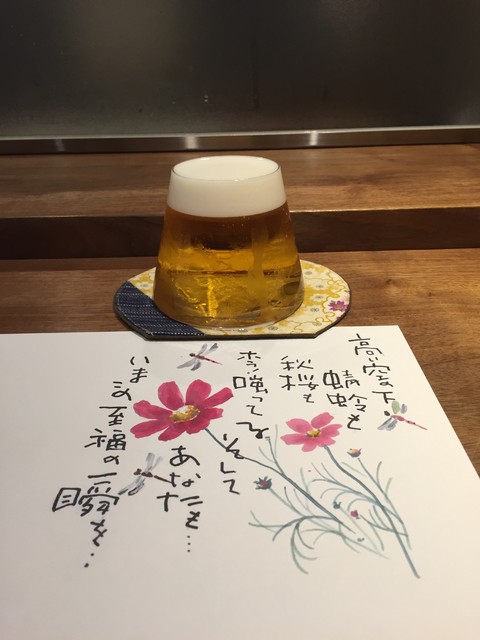 高い空下
蜻蛉も
秋桜も
ホラ ってる
そして
あなたも…
いま
この至福の一 を…